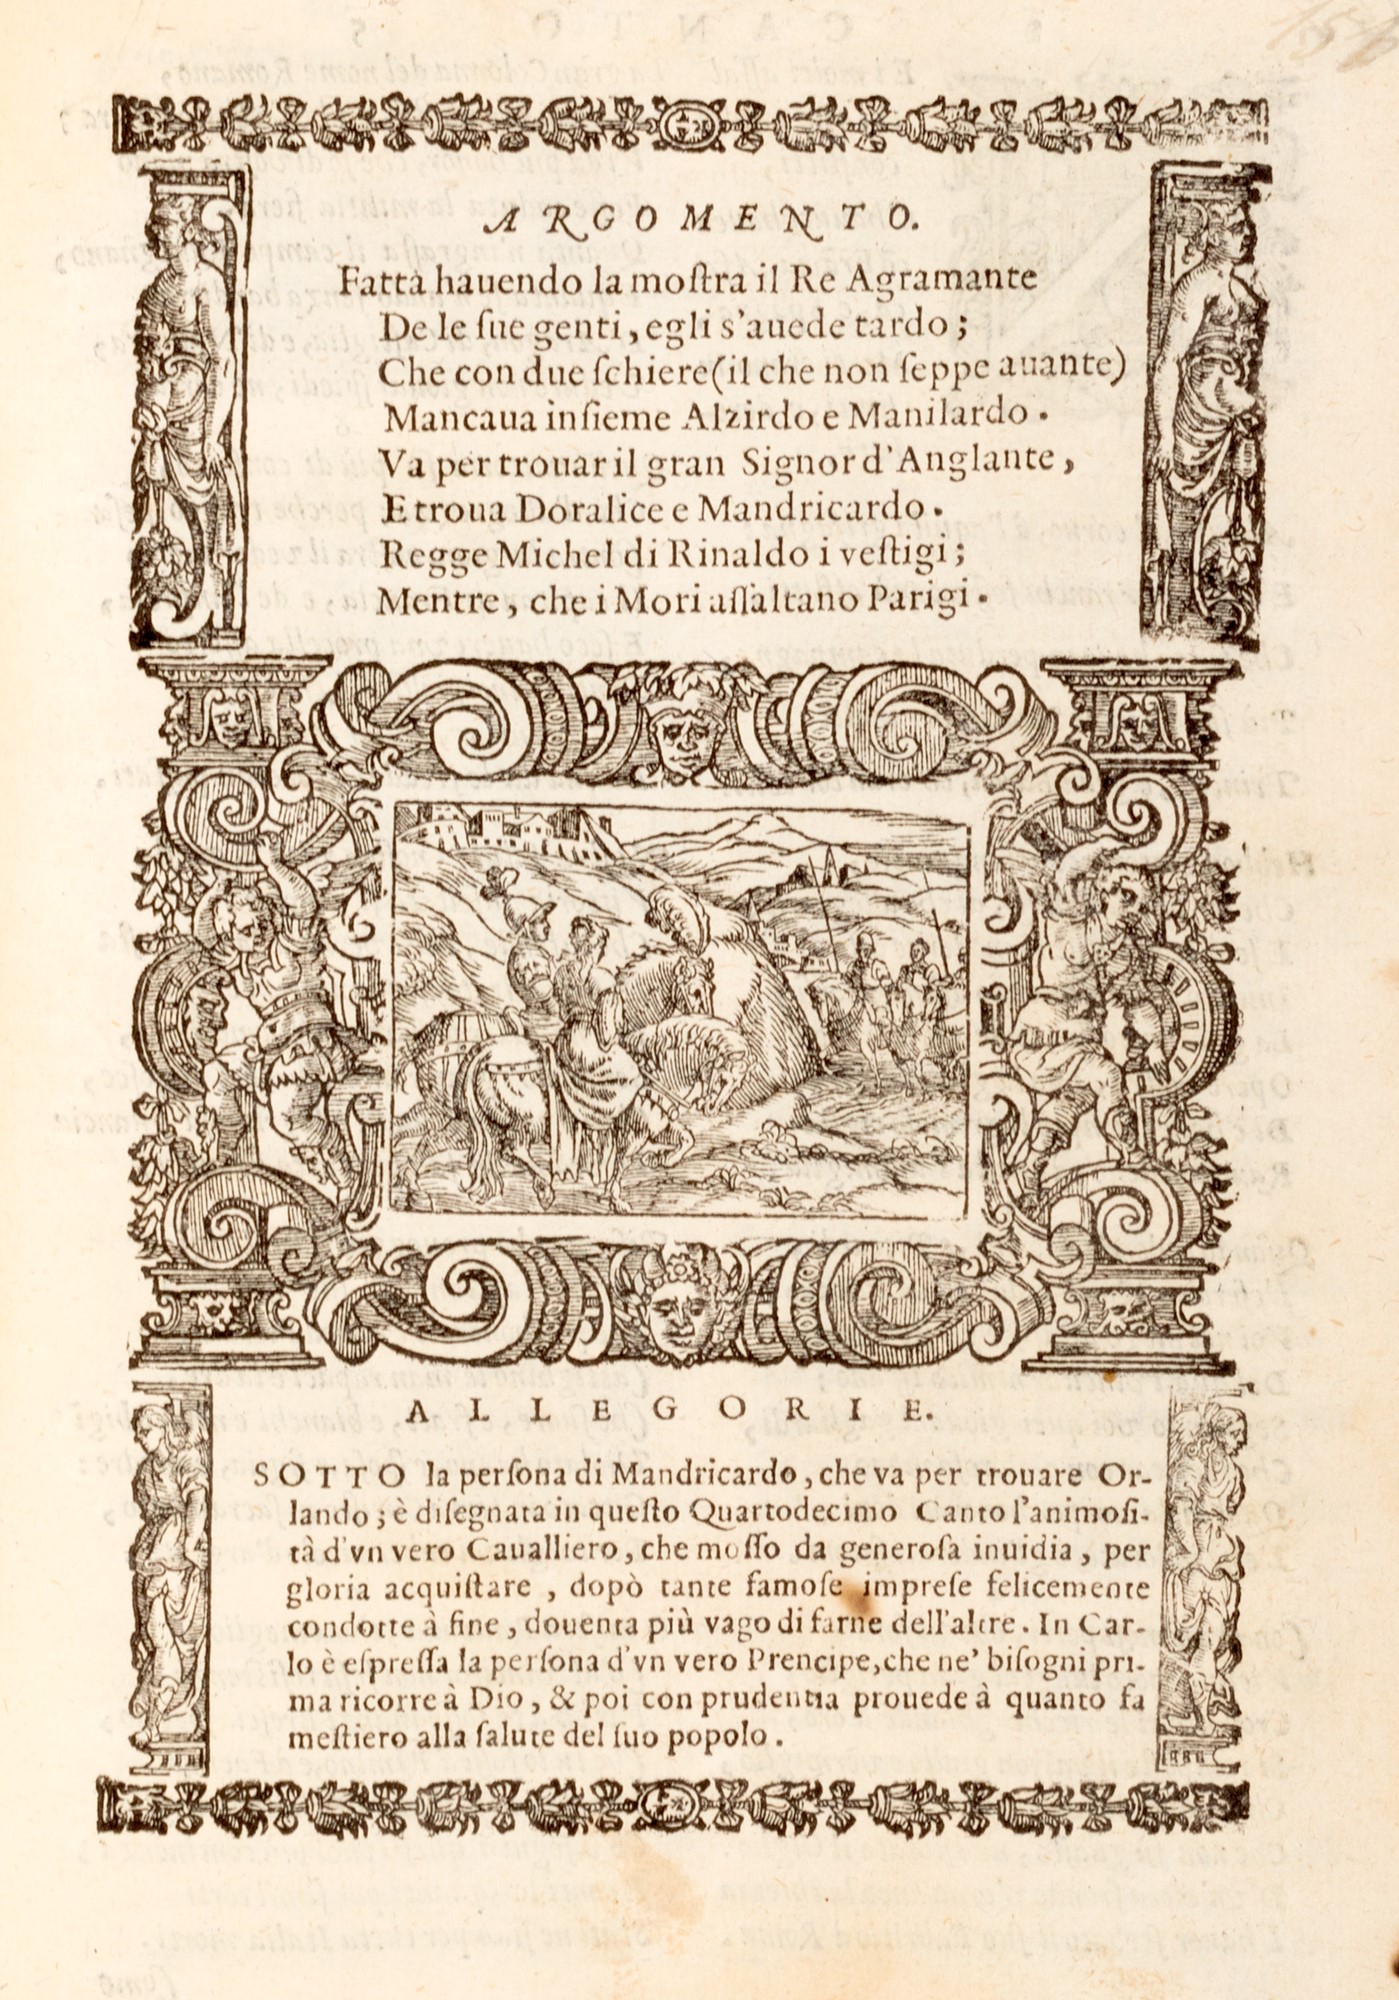 ARGOMENTO.
Fatta hauendo la moſtra il Re Agramante
De le ſue genti, egli s'auede tardo;
Che con due ſchiere (il che non ſeppe auante)
Mancaua inſieme Alzirdo e Manilardo.
Va per trouar il gran Signor d'Anglante,
E troua Doralice e Mandricardo.
Regge Michel di Rinaldo i veſtigi;
Mentre, che i Mori aſſaltano Parigi.
ALLEGORIE.
SOTTO la perſona di Mandricardo, che va per trouare Or-
lando; è diſegnata in queſto Quartodecimo Canto l'animoſi-
tà d'vn vero Caualliero, che moſſo da generoſa inuidia, per
gloria acquiſtare, dopò tante famoſe impreſe felicemente
condotte à fine, douenta più vago di farne dell'altre. In Car-
lo è eſpreſſa la perſona d'vn vero Prencipe, che ne' biſogni pri-
ma ricorre à Dio, & poi con prudentia prouede à quanto fa
meſtiero alla ſalute del ſuo popolo.